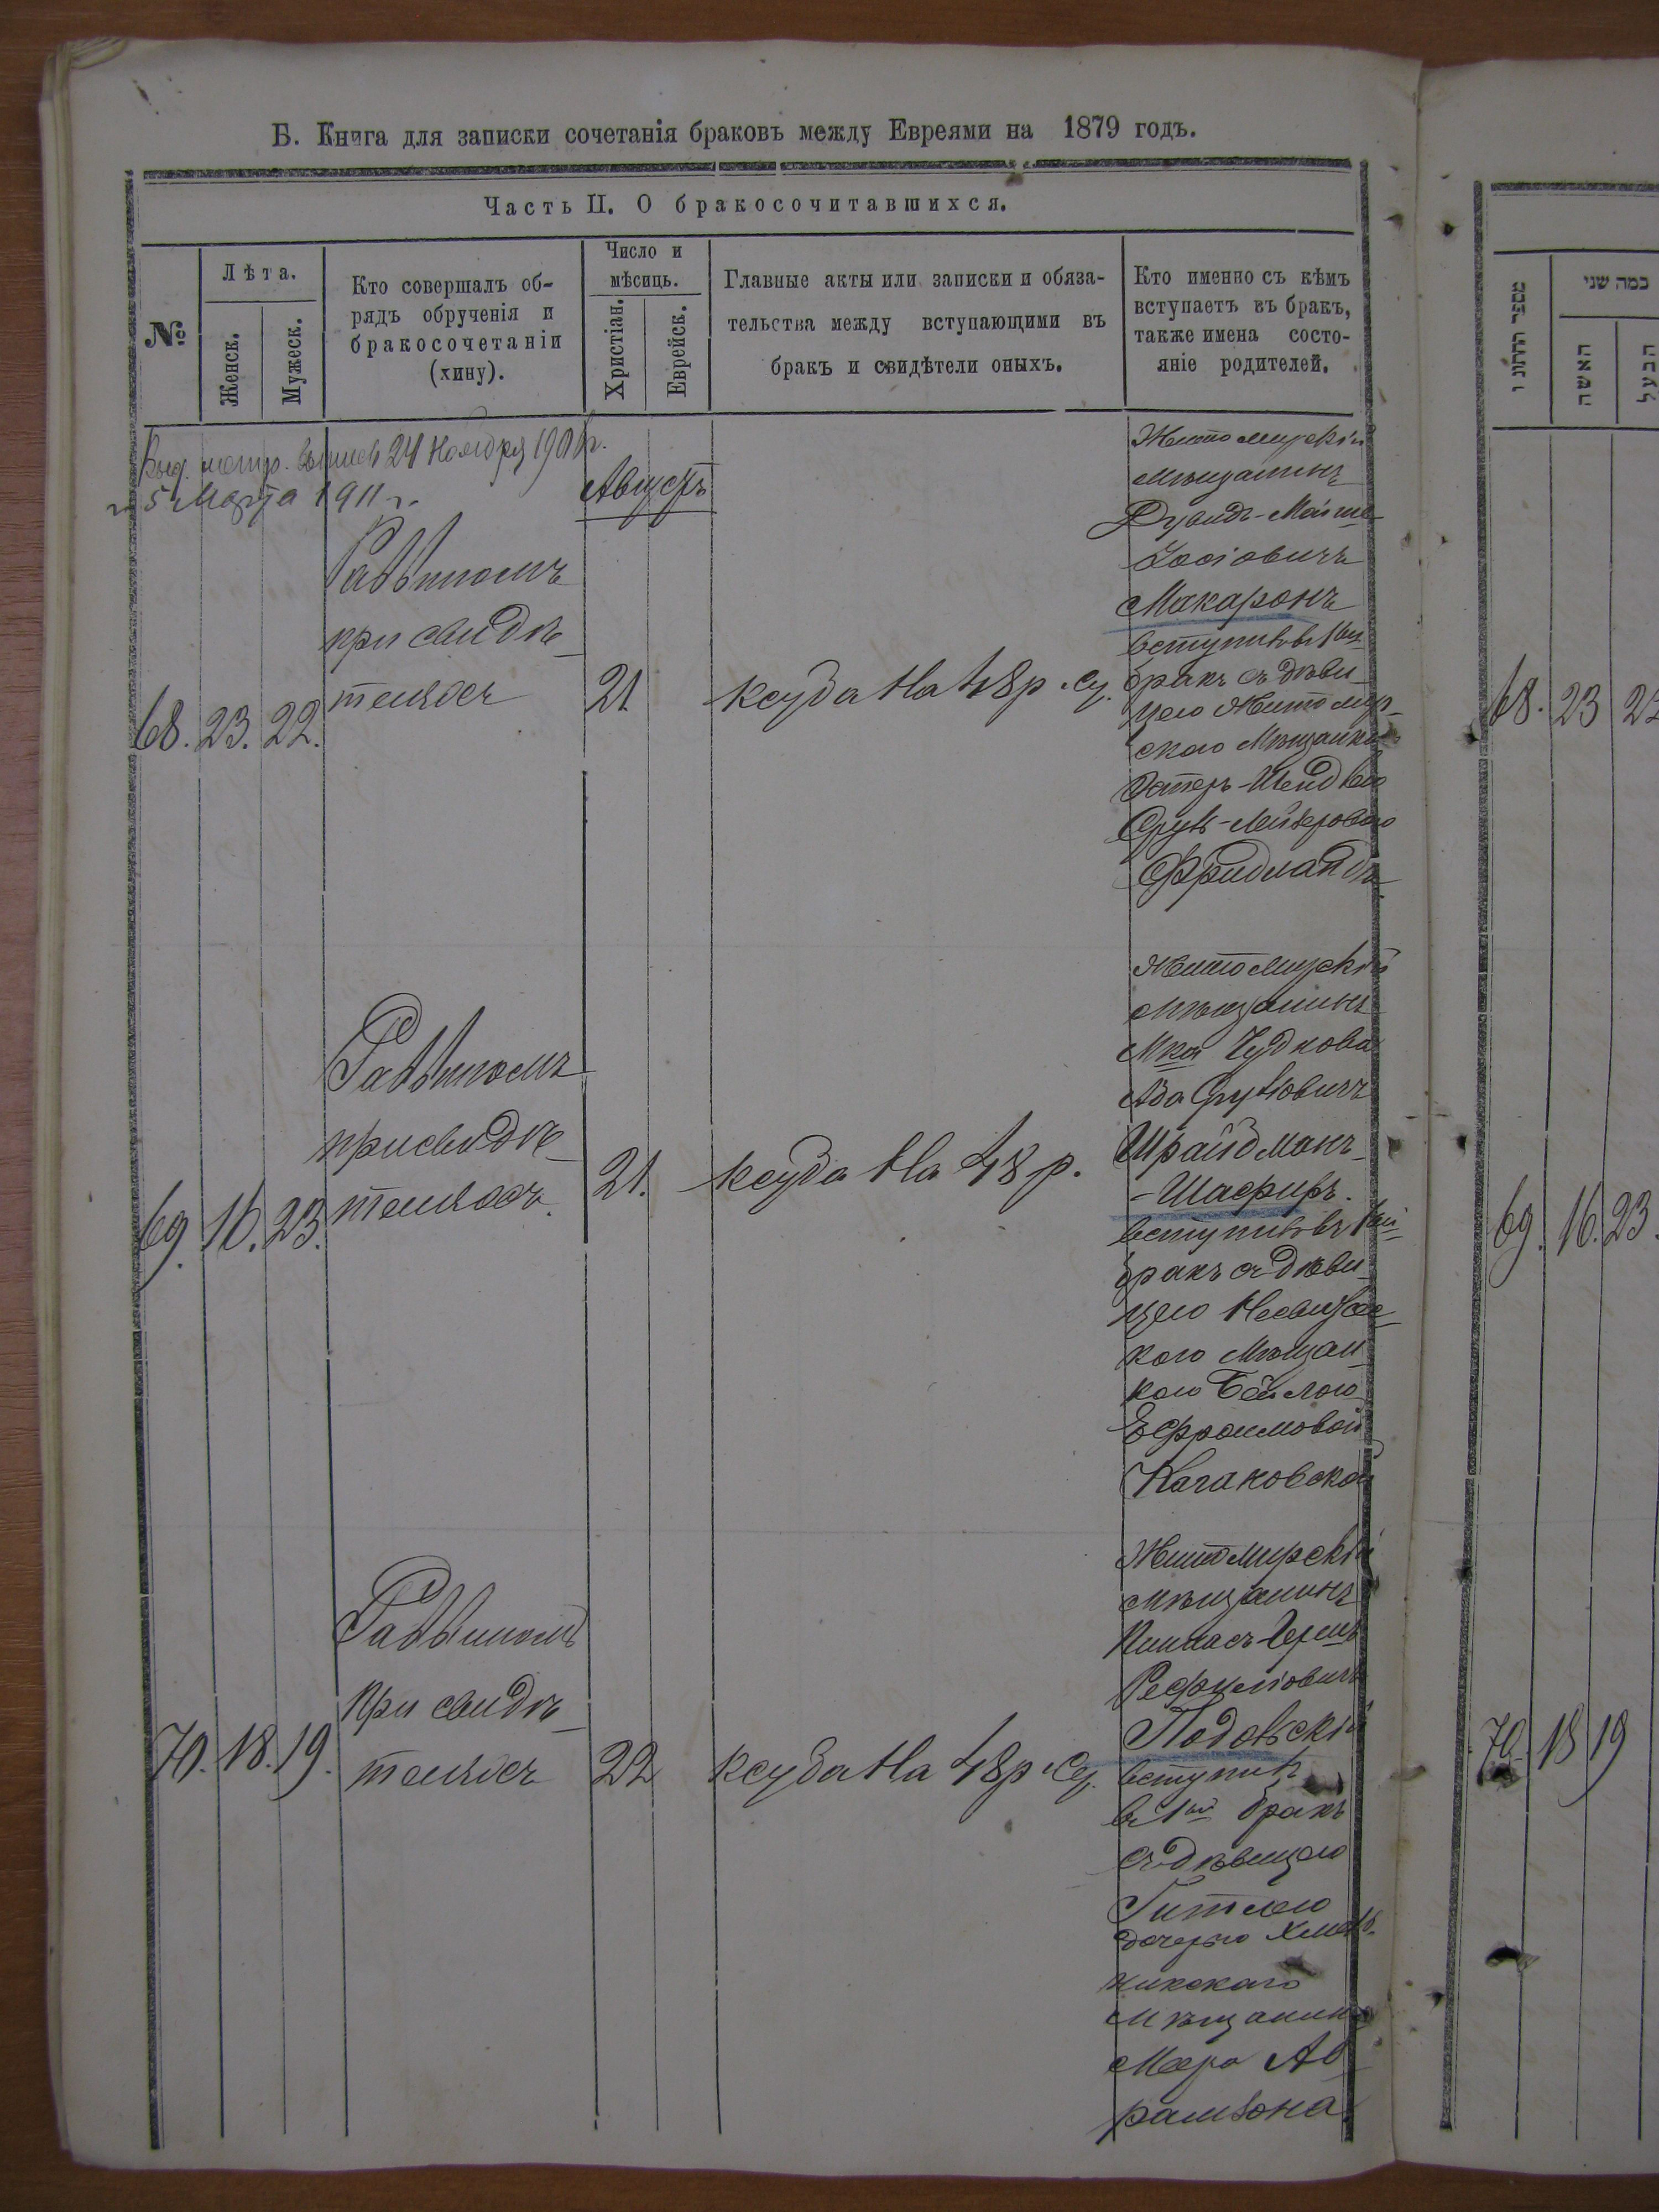 Б. Книга для записки сочетанія браковъ между Евреями на 1879 годъ.
Часть II. О бракосочитавшихся.
№
Лѣта.
Женск.
Мужеск.
Кто совершалъ об-
рядъ обрученія и
бракосочетаніи
(хину).
Число и
мѣсяцъ.
Христіан.
Еврейск.
Главные акты или записки и обяза-
тельства между вступающими въ
бракъ и свидѣтели оныхъ.
Кто именно съ кѣмъ
вступаетъ въ бракъ,
также имена состо-
яніе родителей.
Выд. метр. выпись 24 Ноября
и 5 Марта 1911 г.
Августъ
68. 23. 22.
Раввиномъ
при свидѣ-
теляхъ
21
ксуба на 48 р. се.
Житомирскій
мѣщанинъ
Дувидъ-Мойше
Іосіовичъ
Макаронъ
вступилъ въ 1ый
бракъ съ дѣви-
цею Житомир-
скою Мѣщанкою
Эстеръ-Шейндлею
Срулъ-Лейзеровою
Фридландъ
69. 16. 23.
Раввиномъ
при свидѣ-
теляхъ.
21.
ксуба на 48 р.
Житомирскій
мѣщанинъ
Мка Чуднова
Аба Срулiовичъ
Шрайдманъ-
-Шафиръ.
вступилъ въ 1ый
бракъ съ дѣви-
цею
кою Мѣщан-
кою Бейлою
Ефроимовой
70. 18. 19.
Раввиномъ
при свидѣ-
теляхъ
22
ксуба на 48 р. се.
Житомирскій
мѣщанинъ
Пинхасъ-Герш
Рефуліовичъ
Подовскій
вступилъ
въ 1ый бракъ
съ дѣвицею
Гитлею
дочерью Хмель-
никскаго
мѣщанина
Меера Аб-
рамзона
מספר הדתונ ו
כמה שני
האשה
הבעל
68. 23 22
69. 16. 23.
70. 18 19